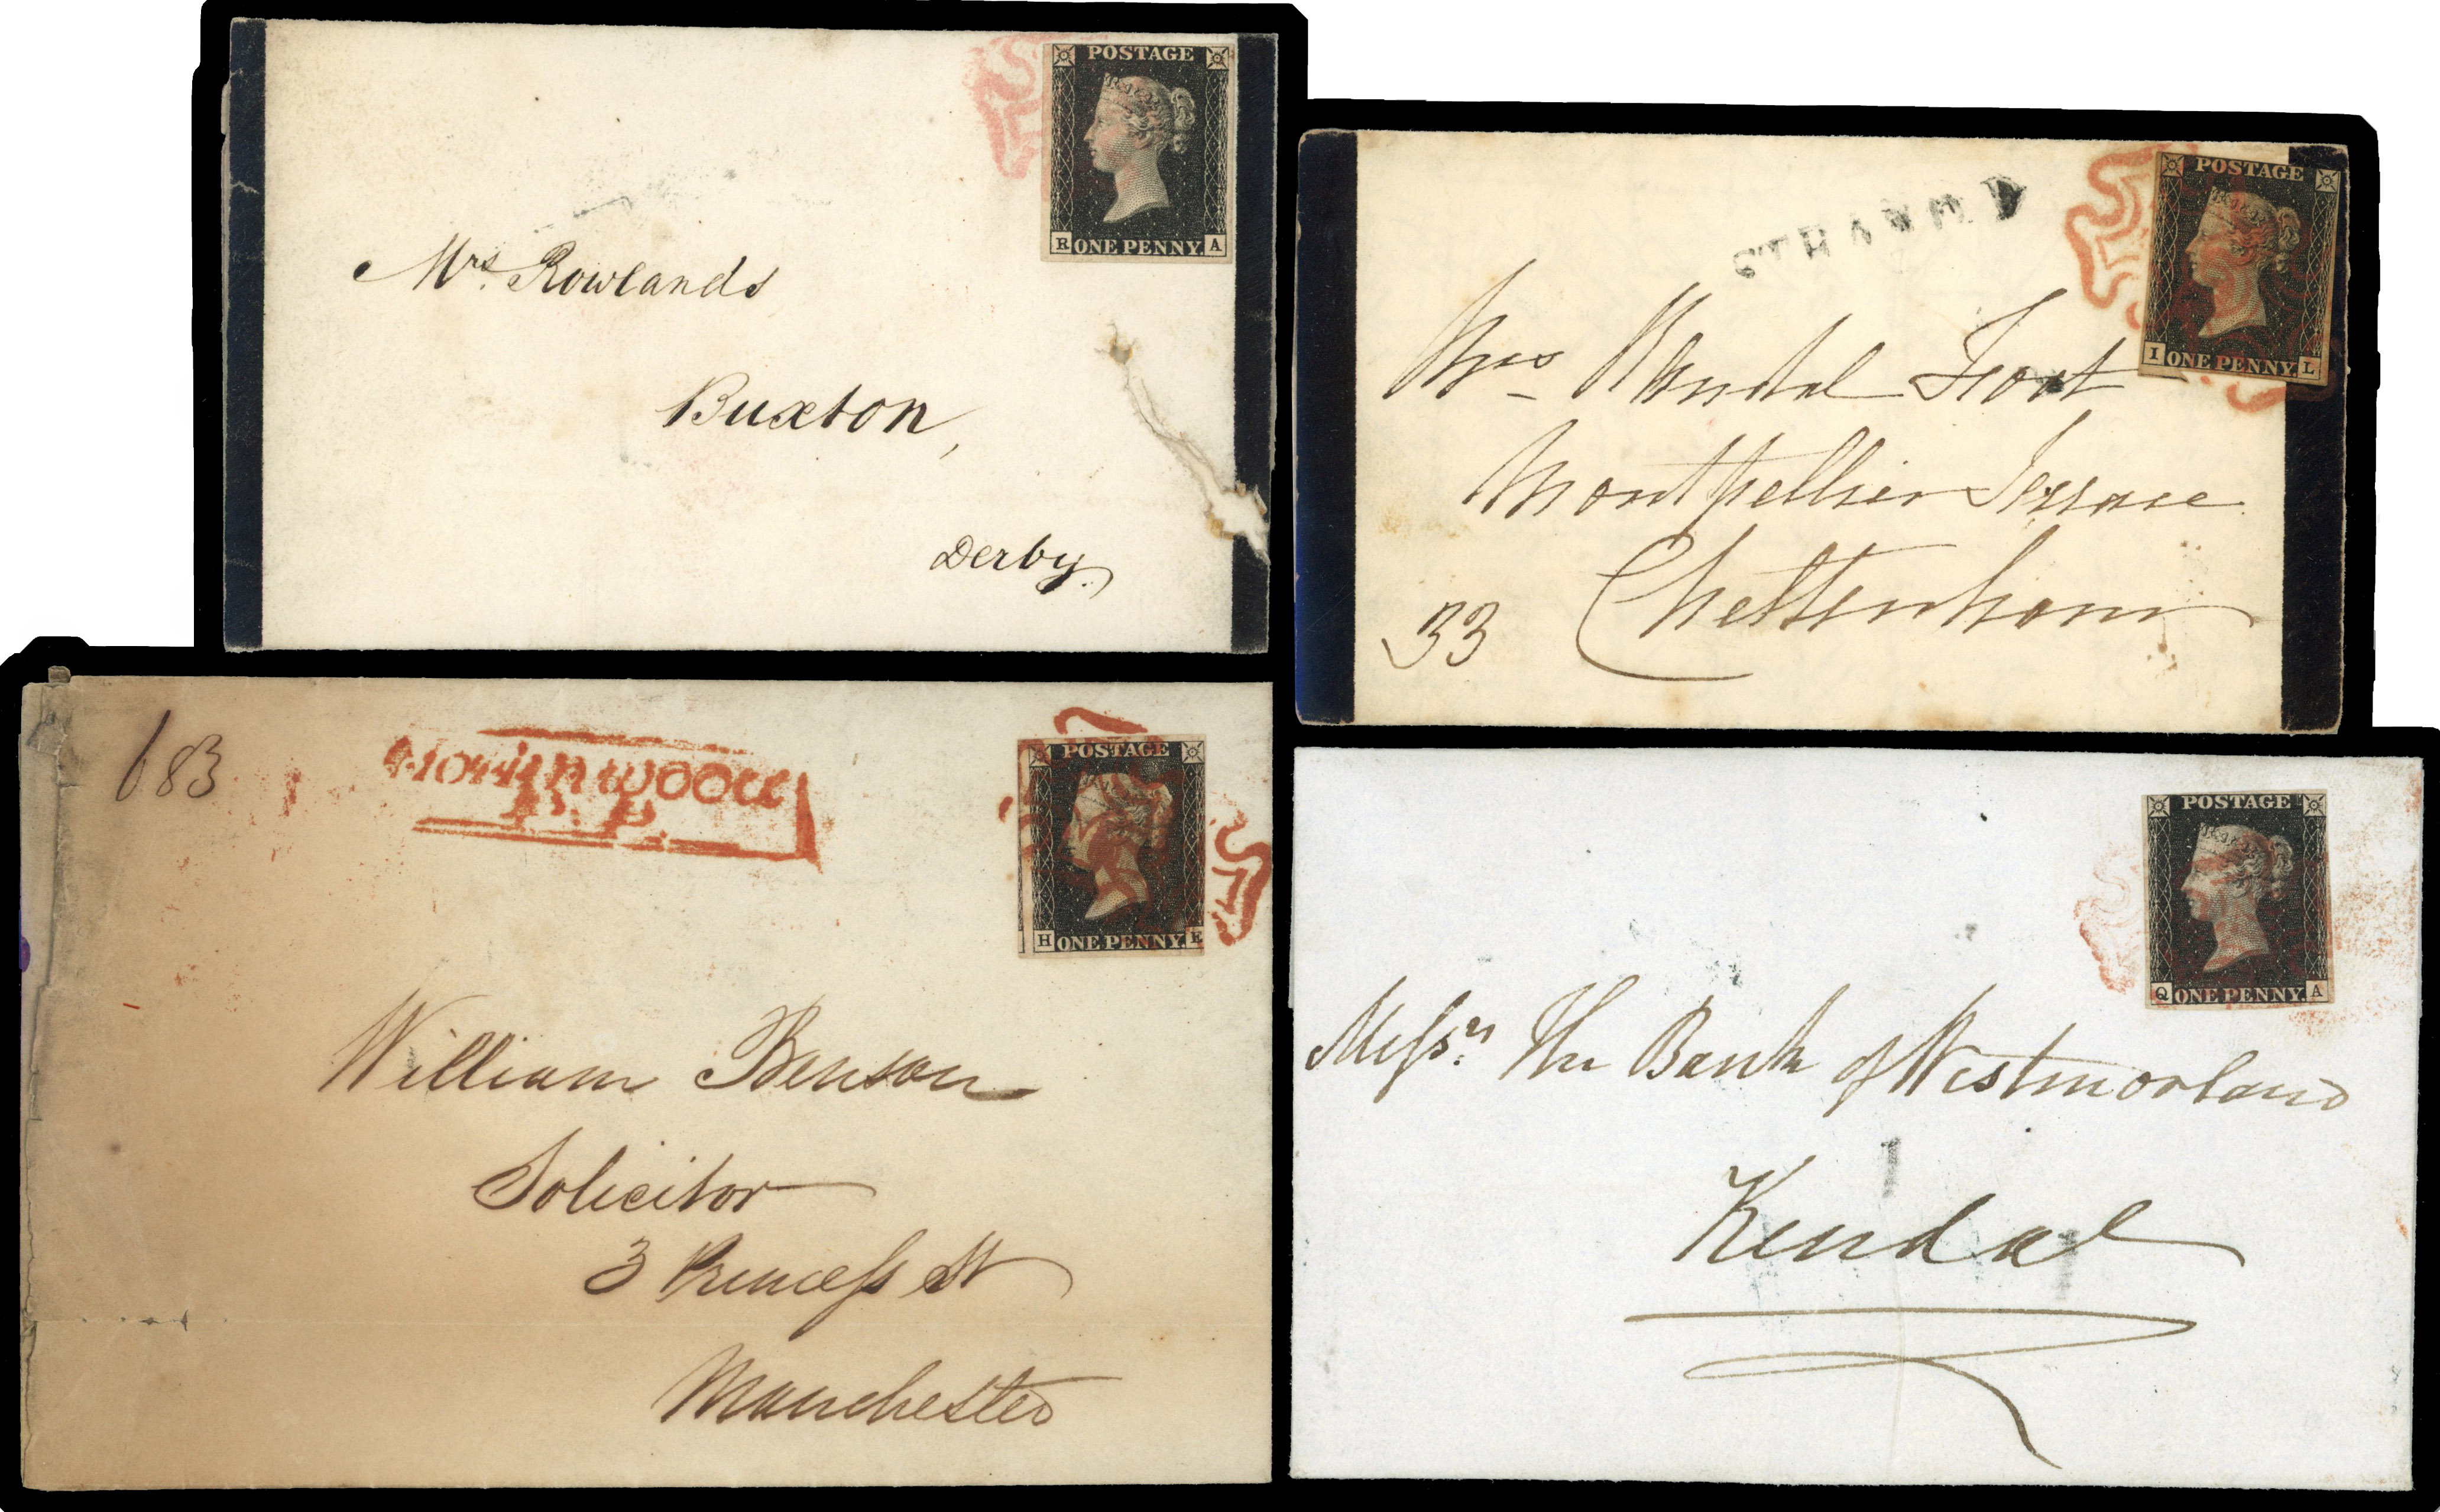 POSTAGE
R ONE PENNY. A
Mrs. Rowlands
Buxton,
Derby.
POSTAGE
I ONE PENNY. L
Mrs
Montpellier Terrace
33 Cheltenham
683
HOLLINWOOD
P.P.
POSTAGE
H ONE PENNY. E
William Benson
Solicitor
3 Princess St
Manchester
POSTAGE
Q ONE PENNY. A
Messrs. The Bank of Westmorland
Kendal